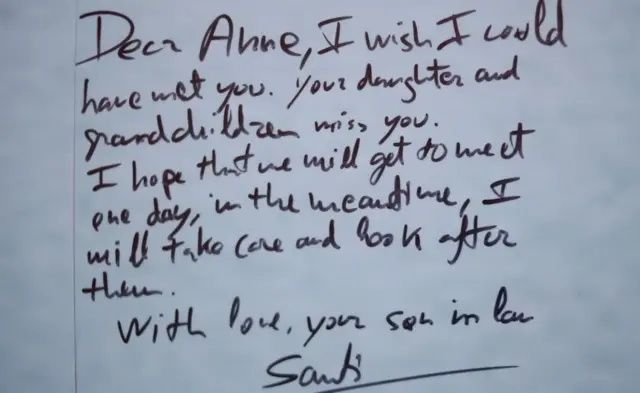 Dear Anne, I wish I could
have met you. Your daughter and
grandchildren miss you.
I hope that we will get to meet
one day, in the meantime, I
will take care and look after
them.
With love, your son in law
Santi